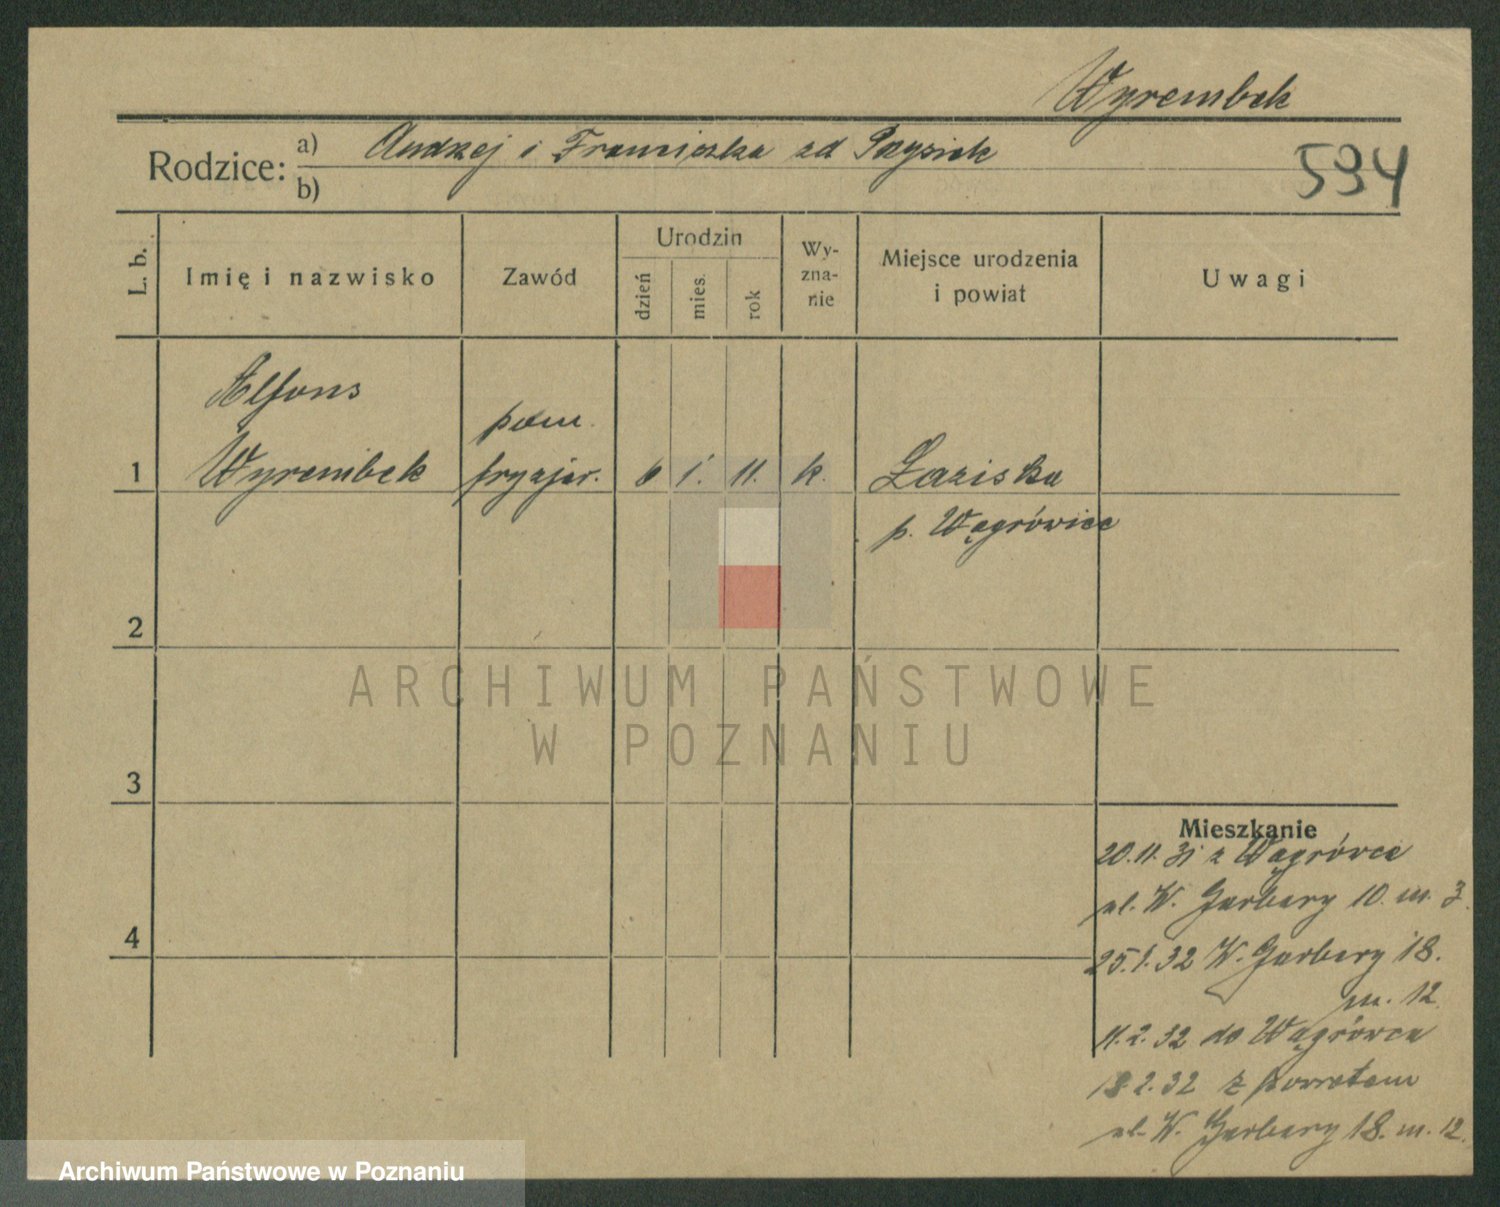 Wyrembek
Rodzice: a) Andrzej i Franciszka zd Pazysiek
594
b)
L. b.
Imię i nazwisko
Zawód
Urodzin
dzień
mies.
rok
Wy-
zna-
nie
Miejsce urodzenia
i powiat
Uwagi
Alfons
pom.
1 Wyrembek fryzjer. 6 1. 11. k. Łaziska
p. Wągrówiec
2
3
4
Mieszkanie
20.11.31 z Wągrówca
ul. W. Garbary 10. m. 3.
25.1.32 W. Garbary 18.
m. 12.
11.2.32 do Wągrówca
18.2.32 z powrotem
ul. W. Garbary 18. m. 12.
ARCHIWUM PAŃSTWOWE
W POZNANIU
Archiwum Państwowe w Poznaniu